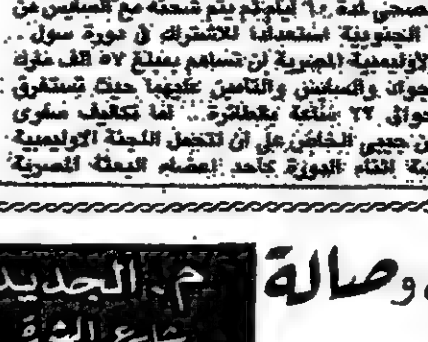 صحى لمدة ١٠ ايام ثم يتم شحنه مع السائس من
الجنوبية استعدادا للاشتراك فى دورة سول ..
الاوليمبية المصرية ان تساهم بمبلغ ٥٧ الف مارك
والسائس والتأمين عليهما حيث تستغرق
حوالى ٢٢ ساعة بالطائرة .. اما تكاليف سفرى
جيبى الخاص على ان تتحمل اللجنة الاوليمبية
اثناء الدورة كأحد اعضاء البعثة المصرية
وصالة
م. الجديد
شارع